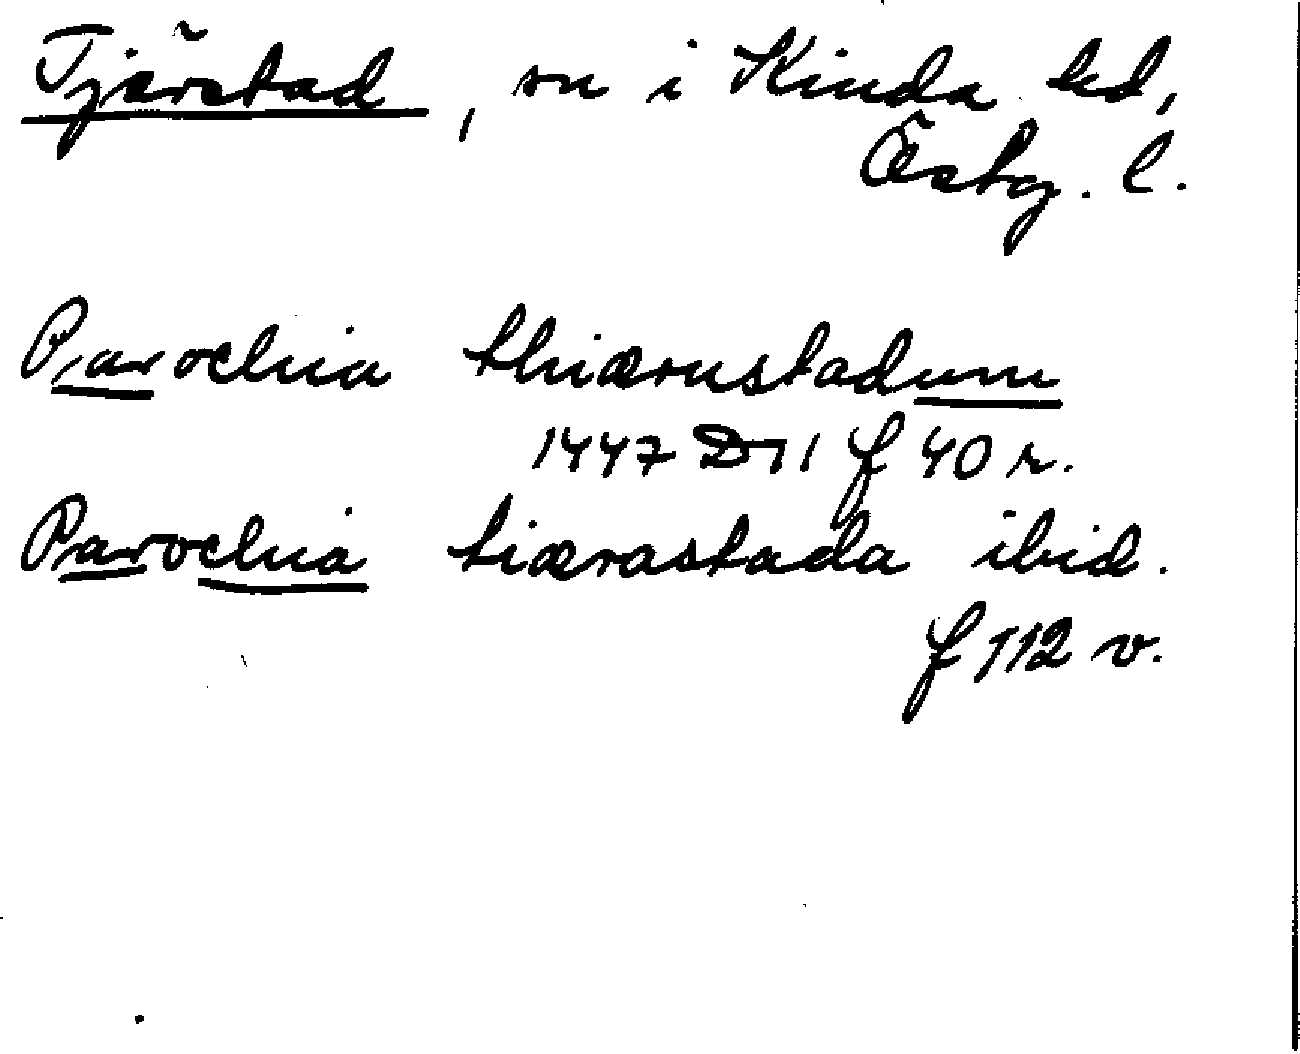 Tjärstad, sn i Kinda hd,
Östg. l.
Parochia thiærnstadum
1447 D 11 f 40 r.
Parochia tiærastada ibid.
f 112 v.